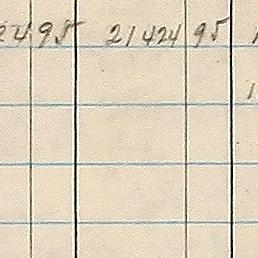 24 95 21424 95